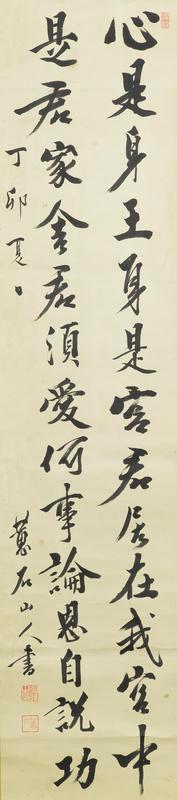 心是身王身是宮君居在我宮中
是君家舍君須愛何事論恩自說功
丁卯夏日
石山人書